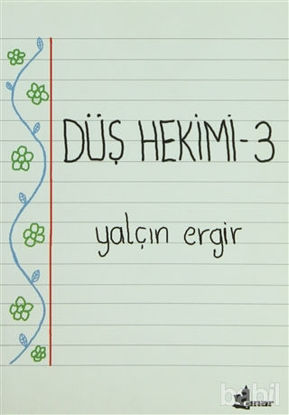 DÜŞ HEKİMİ-3
yalçın ergir
babil